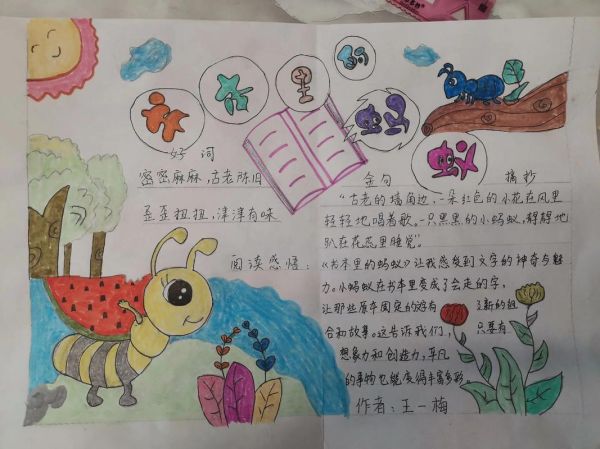 书本里的蚂蚁
好词
密密麻麻，古老陈旧
歪歪扭扭，津津有味
阅读感悟：
金句 摘抄
“古老的墙角边，一朵红色的小花在风里
轻轻地唱着歌。一只黑黑的小蚂蚁，静静地
趴在花蕊里睡觉”。
《书本里的蚂蚁》让我感受到文字的神奇与魅
力。小蚂蚁在书本里变成了会走的字，
让那些原本固定的 有了新的组
合和故事。这告诉我们，只要有
想象力和创造力，平凡
的事物也能变得丰富多彩。
作者：王一梅